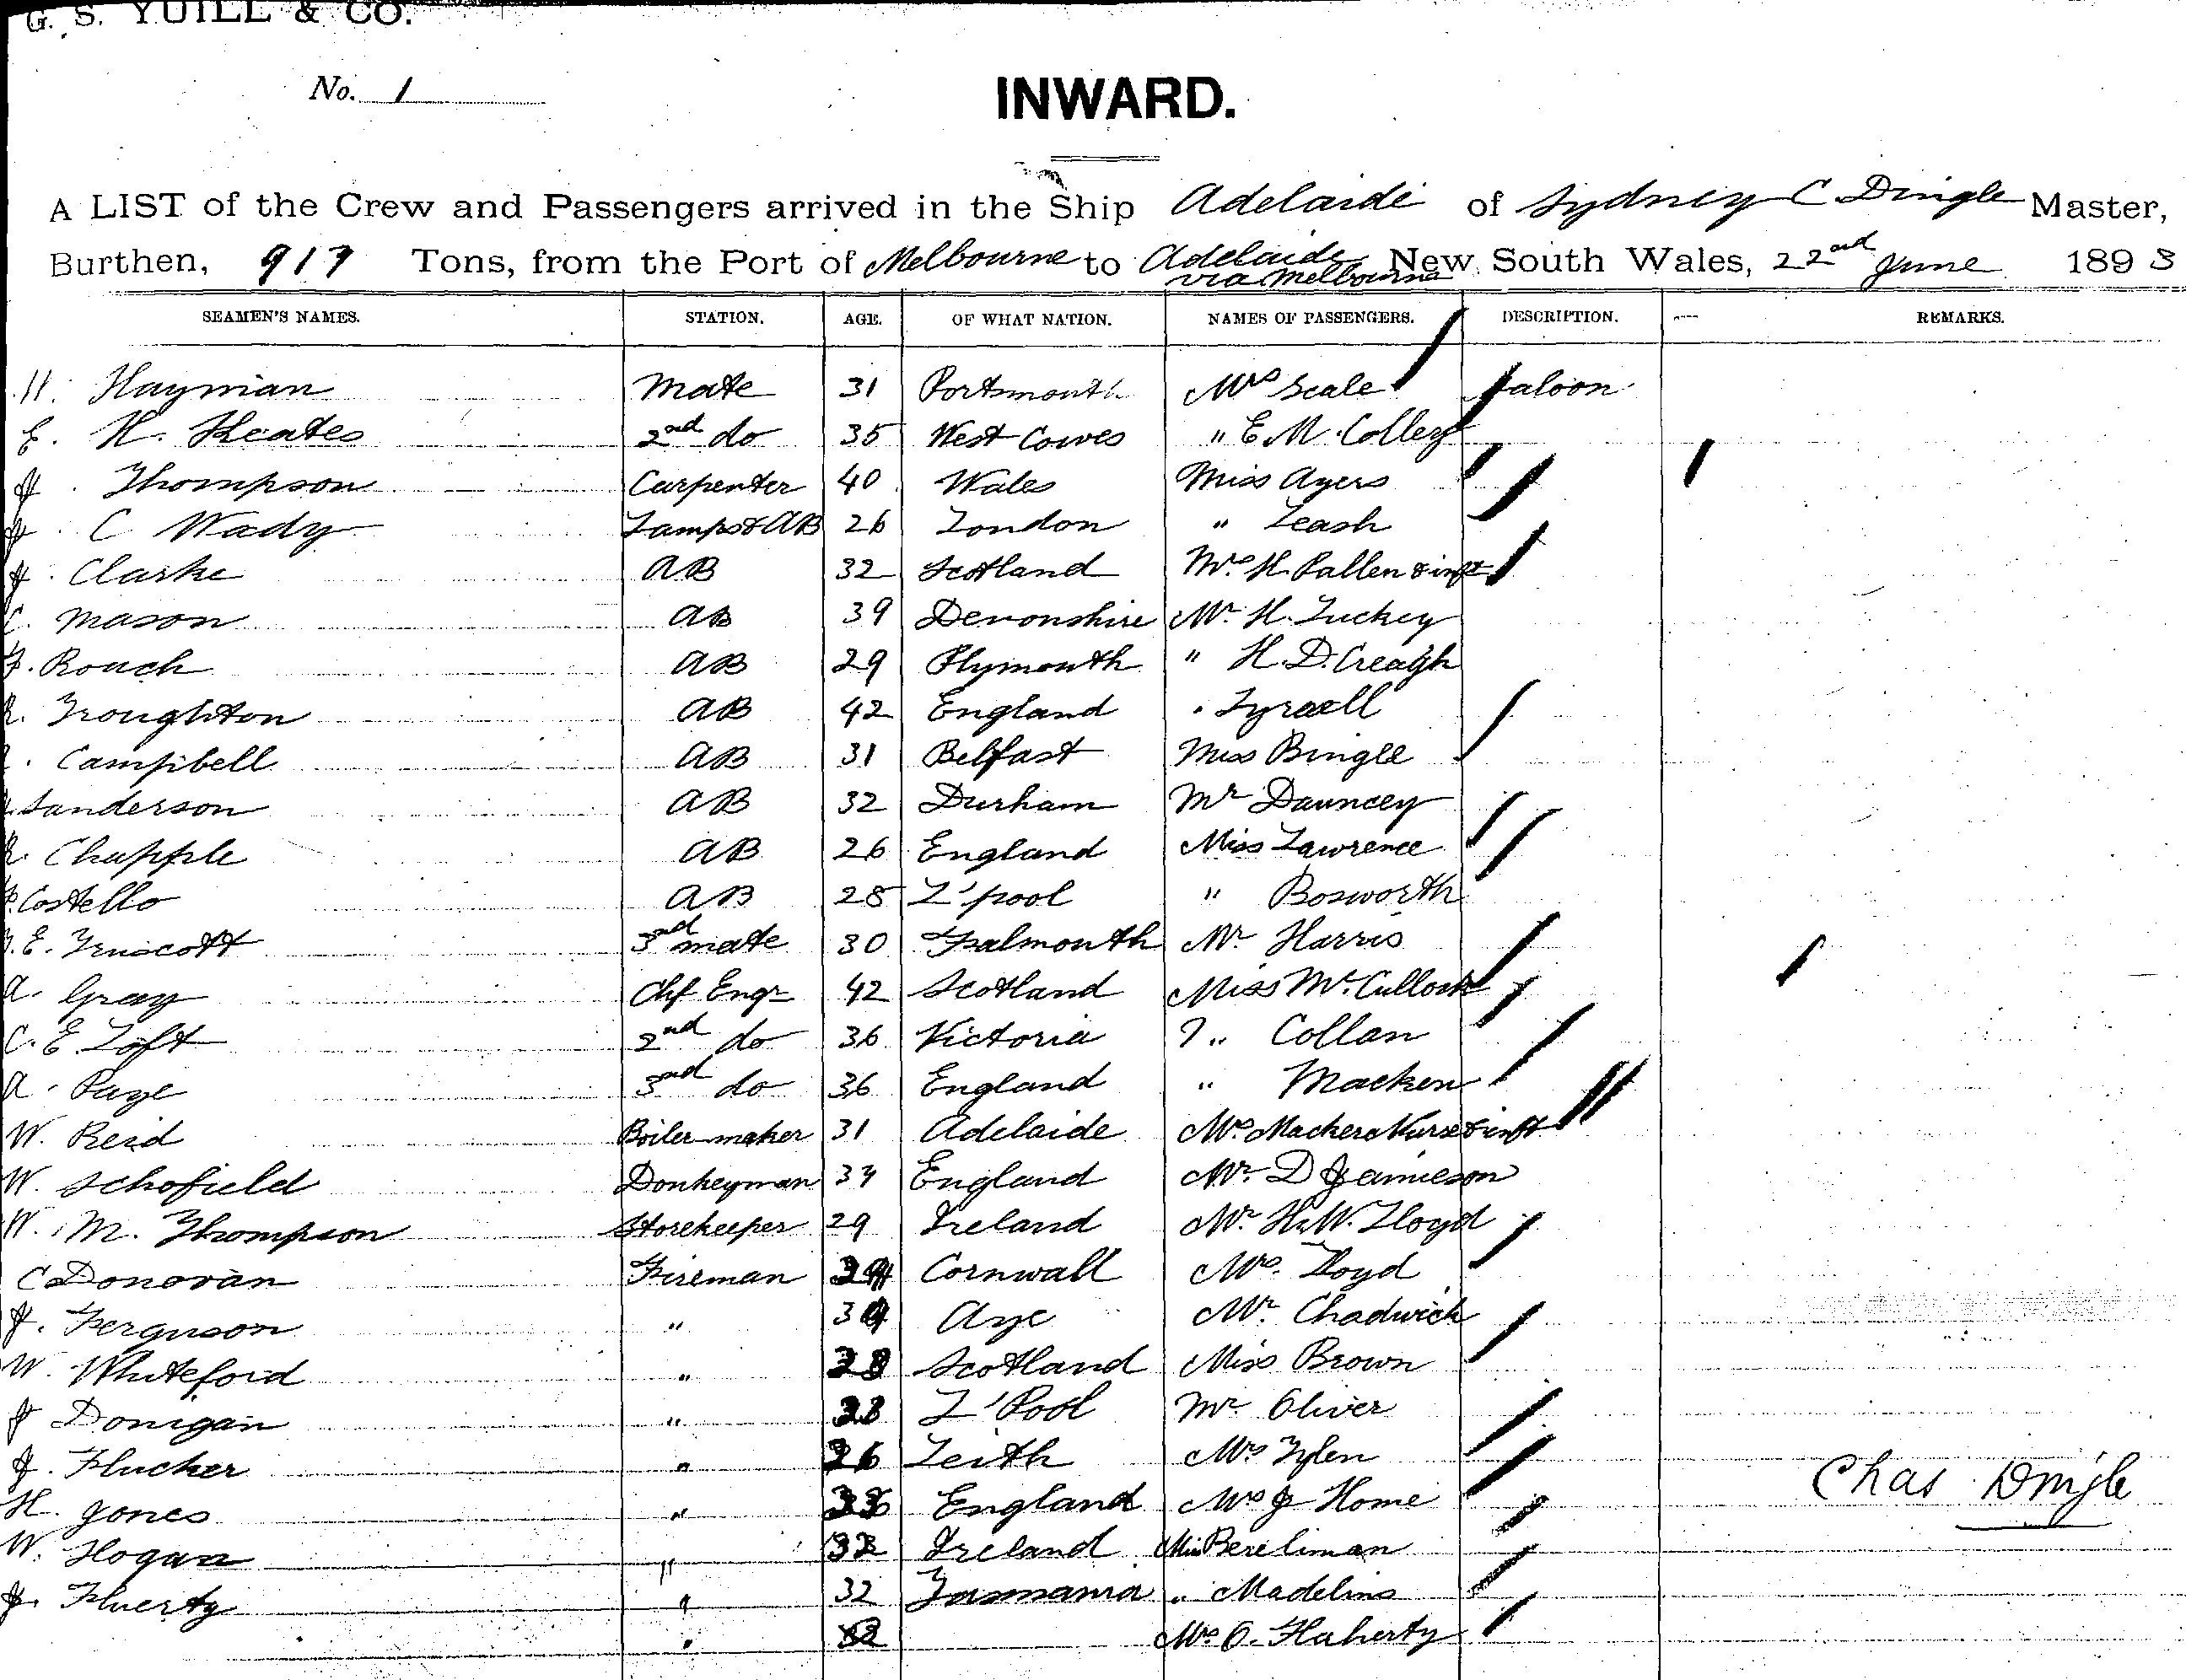 G. S. YUILL & CO.
No. 1
INWARD.
A LIST of the Crew and Passengers arrived in the Ship Adelaide of Sydney C. Dingle Master,
Burthen, 917 Tons, from the Port of Melbourne to Adelaide via Melbourne New South Wales, 22nd June 1893
SEAMEN'S NAMES. STATION. AGE. OF WHAT NATION. NAMES OF PASSENGERS. DESCRIPTION. REMARKS.
H. Hayman Mate 31 Portsmouth Mrs Seale Saloon
E. H. Skeates 2nd do 35 West Cowes " E. M. Colley
J. Thompson Carpenter 40 Wales Miss Ayers
J. C Wady Lamps & AB 26 London " Leash
J. Clarke AB 32 Scotland Mrs H. Pallen & inft
C. Mason AB 39 Devonshire Mr. H. Tuckey
F. Roach AB 29 Plymouth " H. D. Creagh
R. Troughton AB 42 England " Tyraell
Campbell AB 31 Belfast Miss Bingle
Sanderson AB 32 Durham Mr Dauncey
R. Chapple AB 26 England Miss Lawrence
P. Costello AB 28 L'pool " Bosworth
E. Truscott 3rd mate 30 Falmouth Mr Harris
A. Gray Chf Engr 42 Scotland Miss McCulloch
C. E. Loft 2nd do 36 Victoria ? " Collan
A. Page 3rd do 36 England " Macken
W. Reid Boiler maker 31 Adelaide Mrs Mackera Nurse & inft
W. Schofield Donkeyman 34 England Mr. D Jamieson
W. M. Thompson Storekeeper 29 Ireland Mr. H. W. Lloyd
C Donovan Fireman Cornwall Mrs. Lloyd
J. Ferguson " Ayr Mr. Chadwick
W. Whiteford " 28 Scotland Miss Brown
J Donigan " 28 L'Pool Mr Oliver
J. Flucker " 26 Leith Mrs Tylen
H. Jones " England Mrs J Home
W. Hogan " 32 Ireland Miss Bereliman
J. Fluerty " 32 Tasmania " Madelins
" Mrs O. Flaherty
Chas Dingle